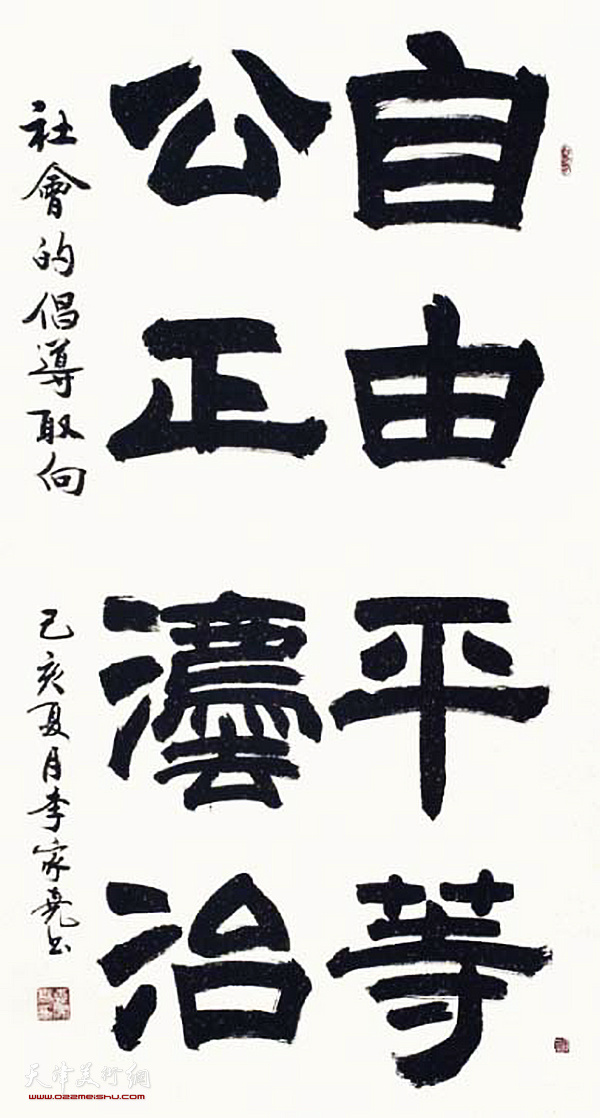 自由平等
公正灋治
社會的倡導取向
己亥夏月李家堯書
天津美术网
www.022meishu.com